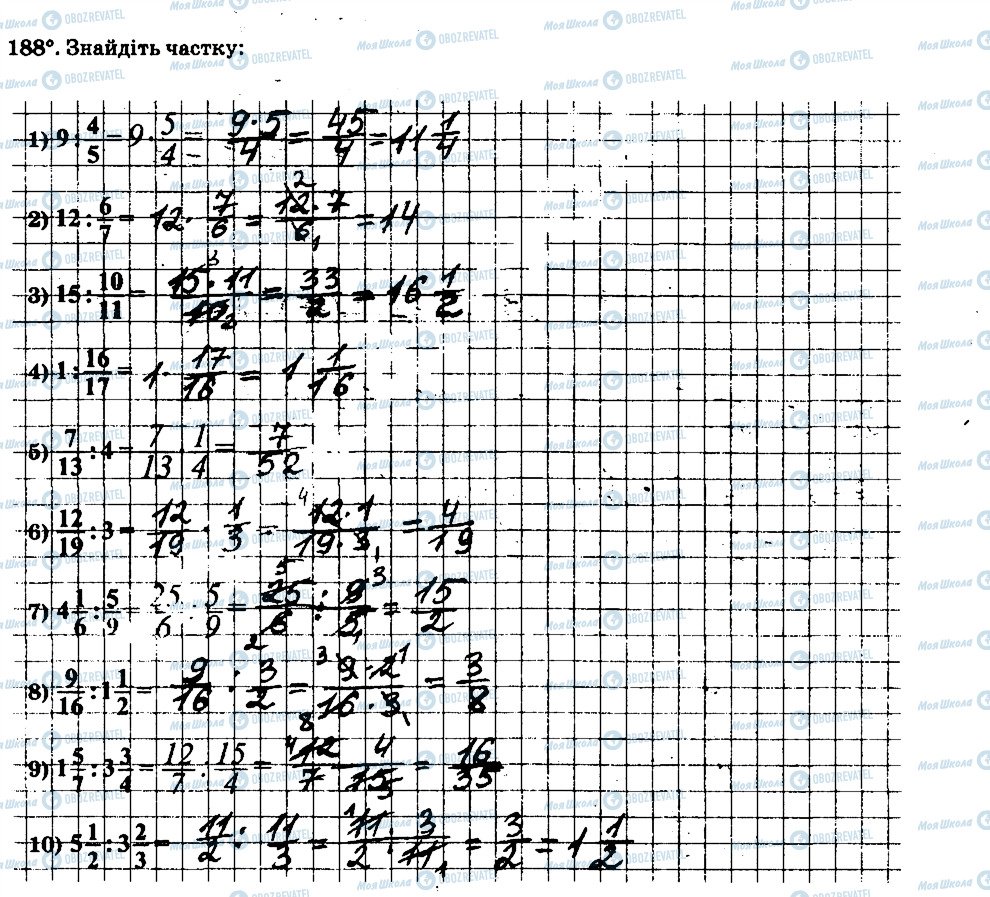 188°. Знайдіть частку:
1) 9 : 4/5 = 9 · 5/4 = 9·5/4 = 45/4 = 11 1/4
2) 12 : 6/7 = 12 · 7/6 = 12·7/6 = 14
3) 15 : 10/11 = 15·11/10 = 33/2 = 16 1/2
4) 1 : 16/17 = 1 · 17/16 = 1 1/16
5) 7/13 : 4 = 7/13 · 1/4 = 7/52
6) 12/19 : 3 = 12/19 · 1/3 = 12·1/19·3 = 4/19
7) 4 1/6 : 5/9 = 25/6 : 5/9 = 25/6 : 9/5 = 15/2
8) 9/16 : 1 1/2 = 9/16 : 3/2 = 9·2/16·3 = 3/8
9) 1 5/7 : 3 3/4 = 12/7 : 15/4 = 12/7 4/15 = 16/35
10) 5 1/2 : 3 2/3 = 11/2 : 11/3 = 11/2 · 3/11 = 3/2 = 1 1/2
Моя Школа OBOZREVATEL